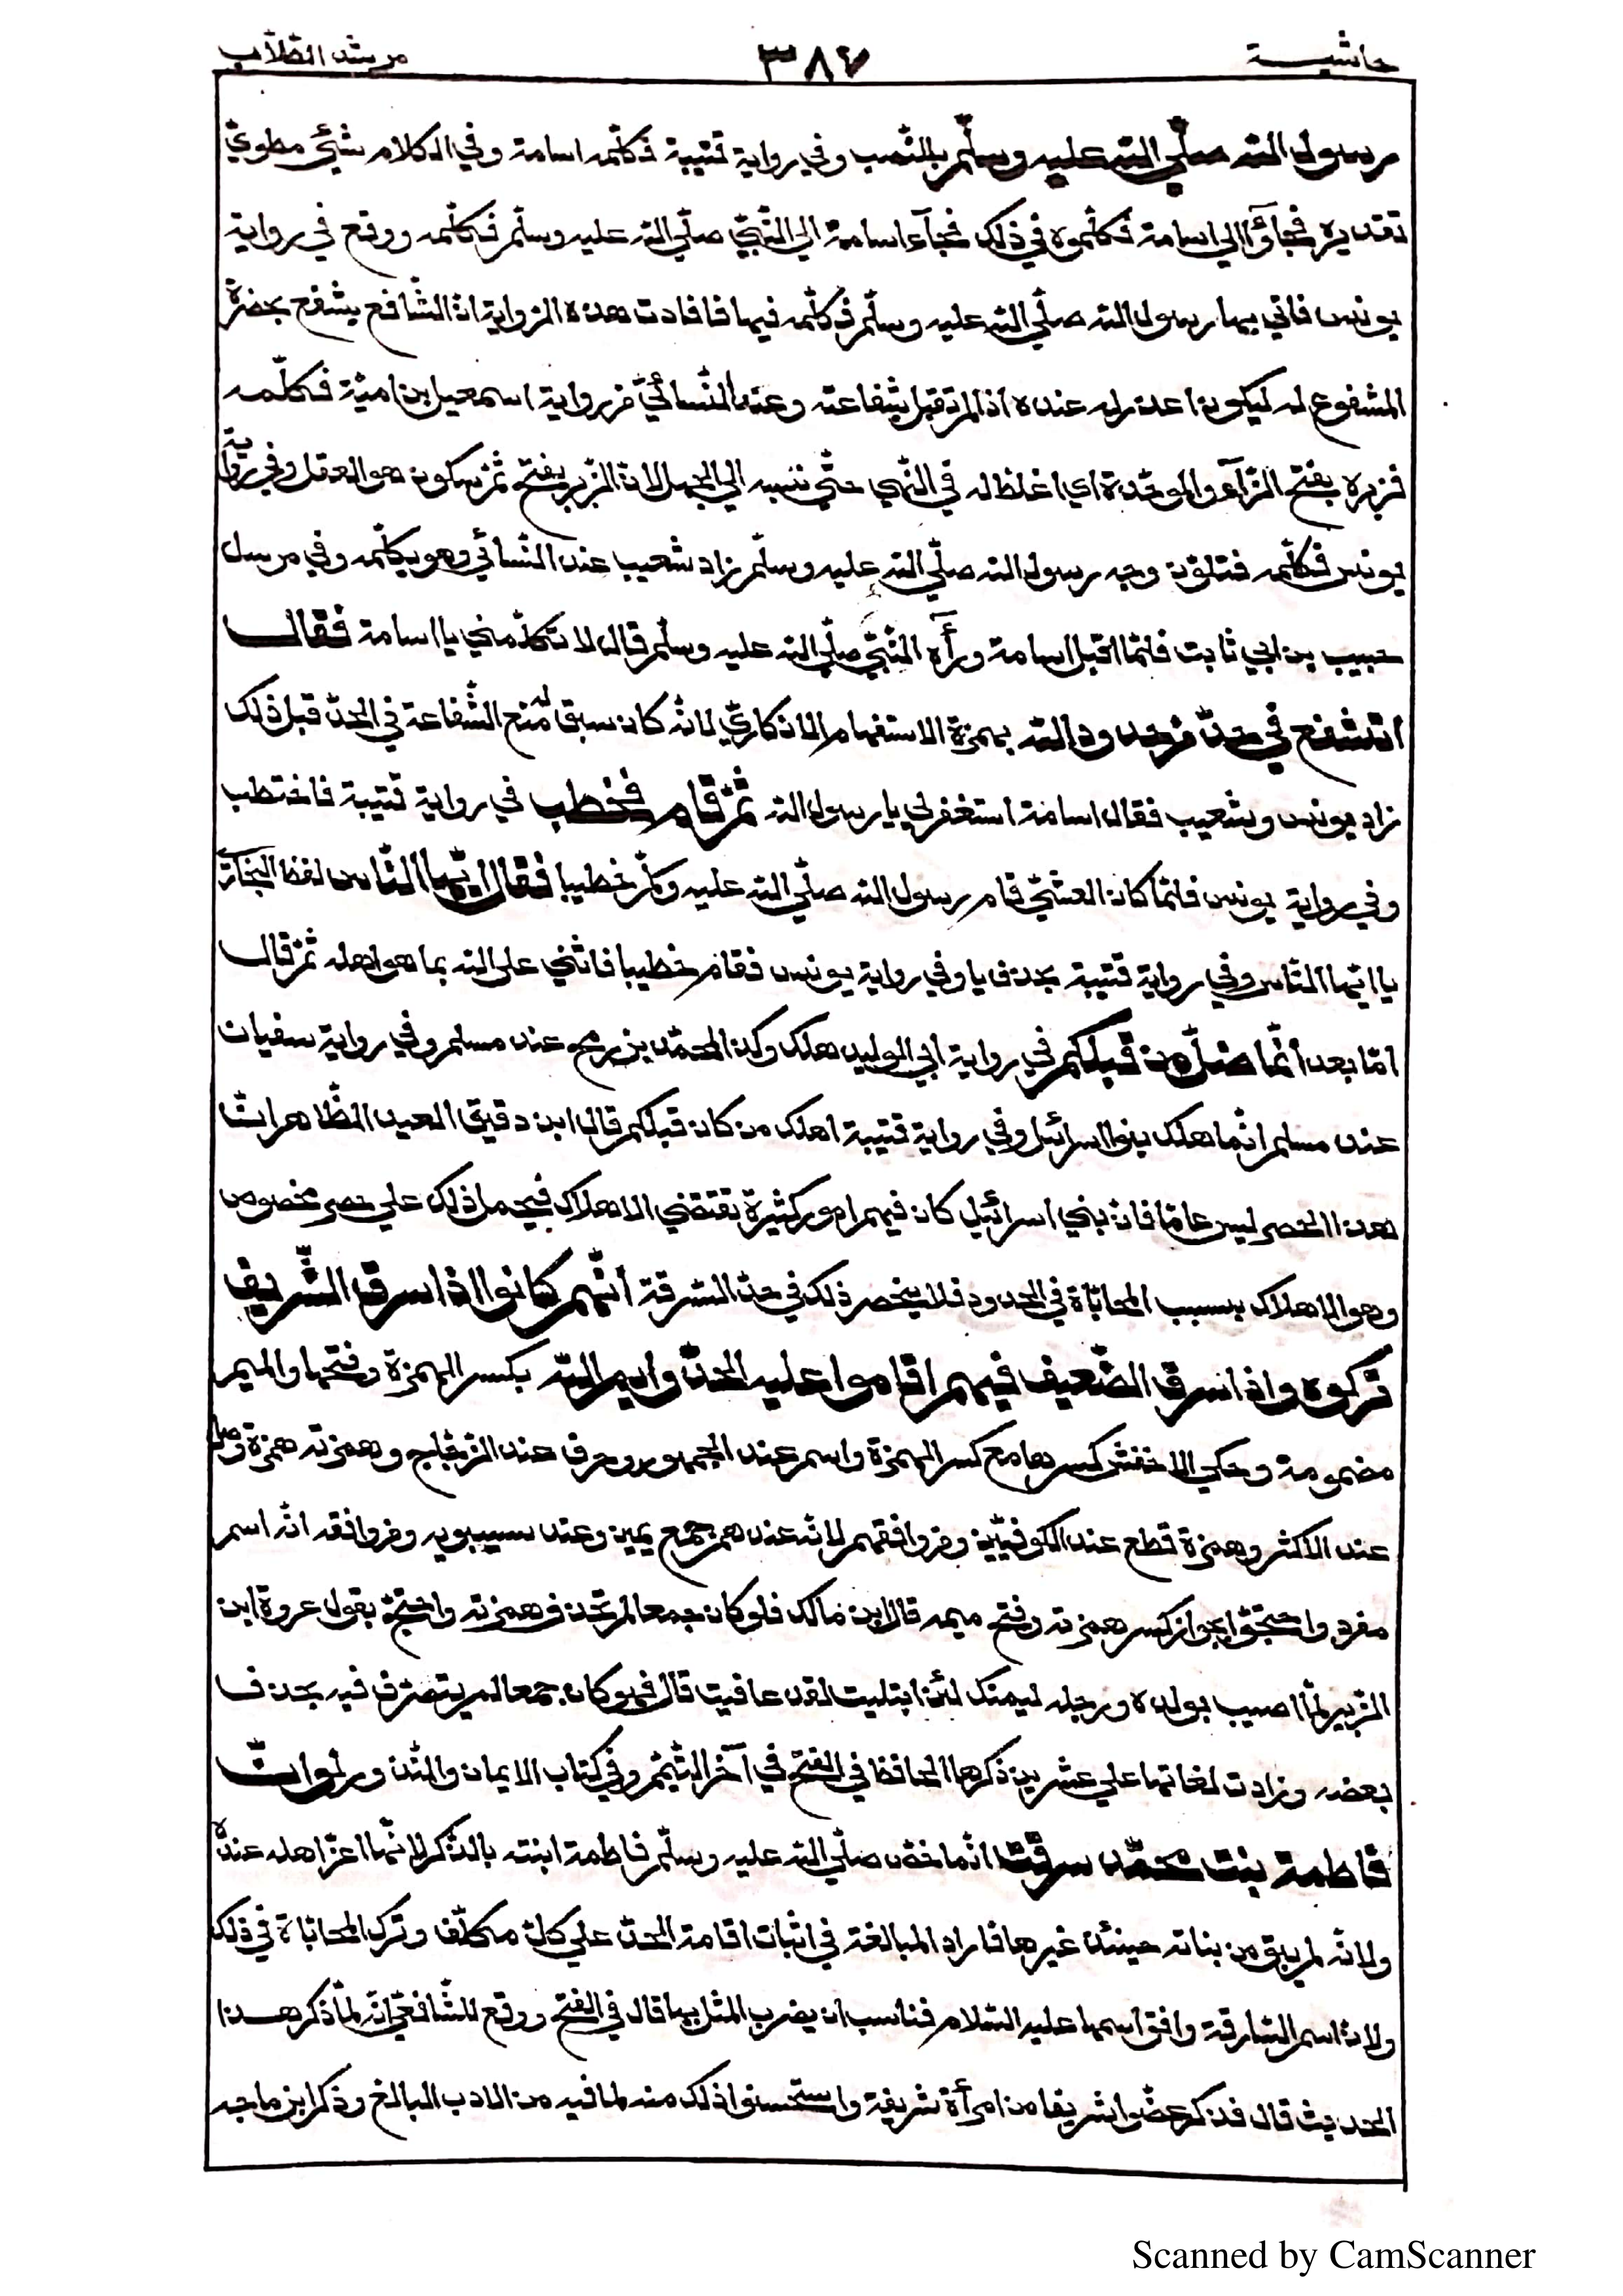 حاشية ٣٨٧ مرشد الطلّاب
رسول الله صلّي الله عليه وسلّم بالنّصب وفي رواية قتيبة فكلّمه اسامة وفي الكلام شئ مطويّ
تقديره فجاؤا الي اسامة فكلّموه في ذلك فجآء اسامة الي النّبيّ صلّي الله عليه وسلّم فكلّمه ووقع في رواية
يونس فاتي بها رسول الله صلّي الله عليه وسلّم فكلّمه فيها فافادت هذه الرّواية انّ الشّافع يشفع بحضرة
المشفوع له ليكون اعذر له عنده اذا لم تقبل شفاعته وعند النّسائيّ من رواية اسمعيل بن اميّة فكلّمه
فزبره بفتح الزّآء والموحّدة اي اغلظ له في النّهي حتّي نسبه الي الجهل لانّ الزّبر بفتح ثمّ سكون هو العقل وفي رواية
يونس فكلّمه فتلوّن وجه رسول الله صلّي الله عليه وسلّم زاد شعيب عند النّسائي وهو يكلّمه وفي مرسل
حبيب بن ابي ثابت فلمّا اقبل اسامة ورآه النّبيّ صلّي الله عليه وسلّم قال لا تكلّمني يا اسامة فقال
اتشفع في حدّ من حدود الله بهمزة الاستفهام الانكاريّ لانّه كان سبق له منع الشّفاعة في الحدّ قبل ذلك
زاد يونس وشعيب فقال اسامة استغفر لي يا رسول الله ثمّ قام فخطب في رواية قتيبة فاختطب
وفي رواية يونس فلمّا كان العشيّ قام رسول الله صلّي الله عليه وسلّم خطيبا فقال ايّها النّاس لفظ البخاريّ
يا ايّها النّاس وفي رواية قتيبة بحذف يا وفي رواية يونس فقام خطيبا فاثني علي الله بما هو اهله ثمّ قال
امّا بعد انّما ضلّ من قبلكم في رواية ابي الوليد هلك وكذا لمحمّد بن رمح عند مسلم وفي رواية سفيان
عند مسلم انّما هلك بنوا اسرائيل وفي رواية قتيبة اهلك من كان قبلكم قال ابن دقيق العيد الظّاهر انّ
هذا الحصر ليس عامّا فانّ بني اسرائيل كان فيهم امور كثيرة تقتضي الاهلاك فيحمل ذلك علي حصر مخصوص
وهو الاهلاك بسبب المحاباة في الحدود فلا ينحصر ذلك في حدّ السّرقة انّهم كانوا اذا سرق الشّريف
تركوه واذا سرق الضّعيف فيهم اقاموا عليه الحدّ وايم الله بكسر الهمزة وفتحها والميم
مضمومة وحكي الاخفش كسرها مع كسر الهمزة واسم عند الجمهور وحرف عند الزّجّاج وهمزته همزة وصل
عند الاكثر وهمزة قطع عند الكوفيّين ومن وافقهم لانّه عندهم جمع يمين وعند سيبويه ومن وافقه انّه اسم
مفرد واحتجّوا بجواز كسر همزته وفتح ميمه قال ابن مالك فلو كان جمعا لم تحذف همزته واحتجّ بقول عروة ابن
الزّبير لمّا اصيب بولده ورجله ليمنك لئن ابتليت لقد عافيت قال فلو كان جمعا لم يتصرّف فيه بحذف
بعضه وزادت لغاتها علي عشرين ذكرها الحافظ في الفتح في آخر التّيمّم وفي كتاب الايمان والنّذور لو انّ
فاطمة بنت محمّد سرقت انّما خصّ صلّي الله عليه وسلّم فاطمة ابنته بالذّكر لانّها اعزّ اهله عنده
ولانّه لم يبق من بناته حينئذ غيرها فاراد المبالغة في اثبات اقامة الحدّ علي كلّ مكلّف وترك المحاباة في ذلك
ولانّ اسم السّارقة وافق اسمها عليه السّلام فناسب ان يضرب المثل بها قال في الفتح ووقع للشّافعيّ انّه لمّا ذكر هذا
الحديث قال فذكر عضوا شريفا من امرأة شريفة واستحسنوا ذلك منه لما فيه من الادب البالغ وذكر ابن ماجه
Scanned by CamScanner